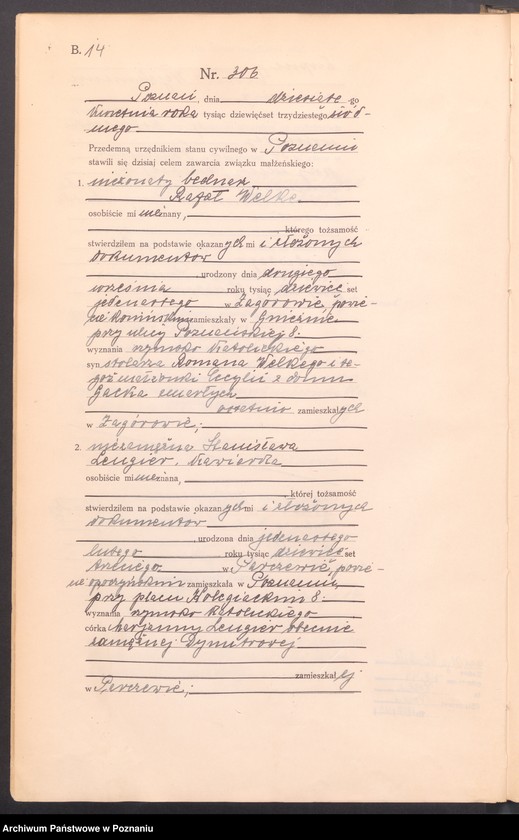 B. 14
Nr. 306
Poznań, dnia dziesiątego
kwietnia roku tysiąc dziewięćset trzydziestego siód-
mego
Przedemną urzędnikiem stanu cywilnego w Poznaniu
stawili się dzisiaj celem zawarcia związku małżeńskiego:
1. nieżonaty bednarz
Rafał Welke
osobiście mi nieznany,
którego tożsamość
stwierdziłem na podstawie okazanych mi i złożonych
dokumentów
urodzony dnia drugiego
września roku tysiąc dziewięćset
jedenastego w Zagórowie, powie-
cie konińskim zamieszkały w Gnieźnie
przy ulicy Poznańskiej 8.
wyznania rzymsko katolickiego
syn stolarza Romana Welkego i te-
goż małżonki Cecylii z domu
zmarłych
ostatnio zamieszkałych
w Zagórowie;
2. niezamężna Stanisława
Lengier,
osobiście mi nieznana,
której tożsamość
stwierdziłem na podstawie okazanych mi i złożonych
dokumentów
urodzona dnia jedenastego
lutego roku tysiąc dziewięćset
w powie-
cie opoczyńskim zamieszkała w Poznaniu,
przy placu Kolegiackim 8.
wyznania rzymsko katolickiego
córka Marjanny Lengier obecnie
zamężnej
zamieszkałej
w
Archiwum Państwowe w Poznaniu